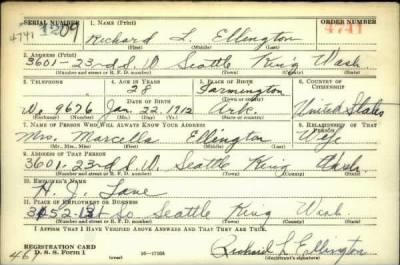 SERIAL NUMBER 1. NAME (Print) ORDER NUMBER
1209 Richard L. Ellington 4741
4741 (First) (Middle) (Last)
2. ADDRESS (Print)
3601-23rd S.W. Seattle King Wash.
(Number and street or R. F. D. number) (Town) (County) (State)
3. TELEPHONE 4. AGE IN YEARS 5. PLACE OF BIRTH 6. COUNTRY OF CITIZENSHIP
28 Farmington
DATE OF BIRTH (Town or county)
We 9676 Jan. 22, 1912 Ark. United States
(Exchange) (Number) (Mo.) (Day) (Yr.) (State or country)
7. NAME OF PERSON WHO WILL ALWAYS KNOW YOUR ADDRESS 8. RELATIONSHIP OF THAT PERSON
Mrs. Marcella Ellington Wife
(Mr., Mrs., Miss) (First) (Middle) (Last)
9. ADDRESS OF THAT PERSON
3601-23rd S.W. Seattle King Wash.
(Number and street or R. F. D. number) (Town) (County) (State)
10. EMPLOYER'S NAME
Lane
11. PLACE OF EMPLOYMENT OR BUSINESS
So. Seattle King Wash.
(Number and street or R. F. D. number) (Town) (County) (State)
I AFFIRM THAT I HAVE VERIFIED ABOVE ANSWERS AND THAT THEY ARE TRUE.
REGISTRATION CARD
D. S. S. Form 1 (over) 16-17105 Richard L. Ellington
461 (Registrant's signature)